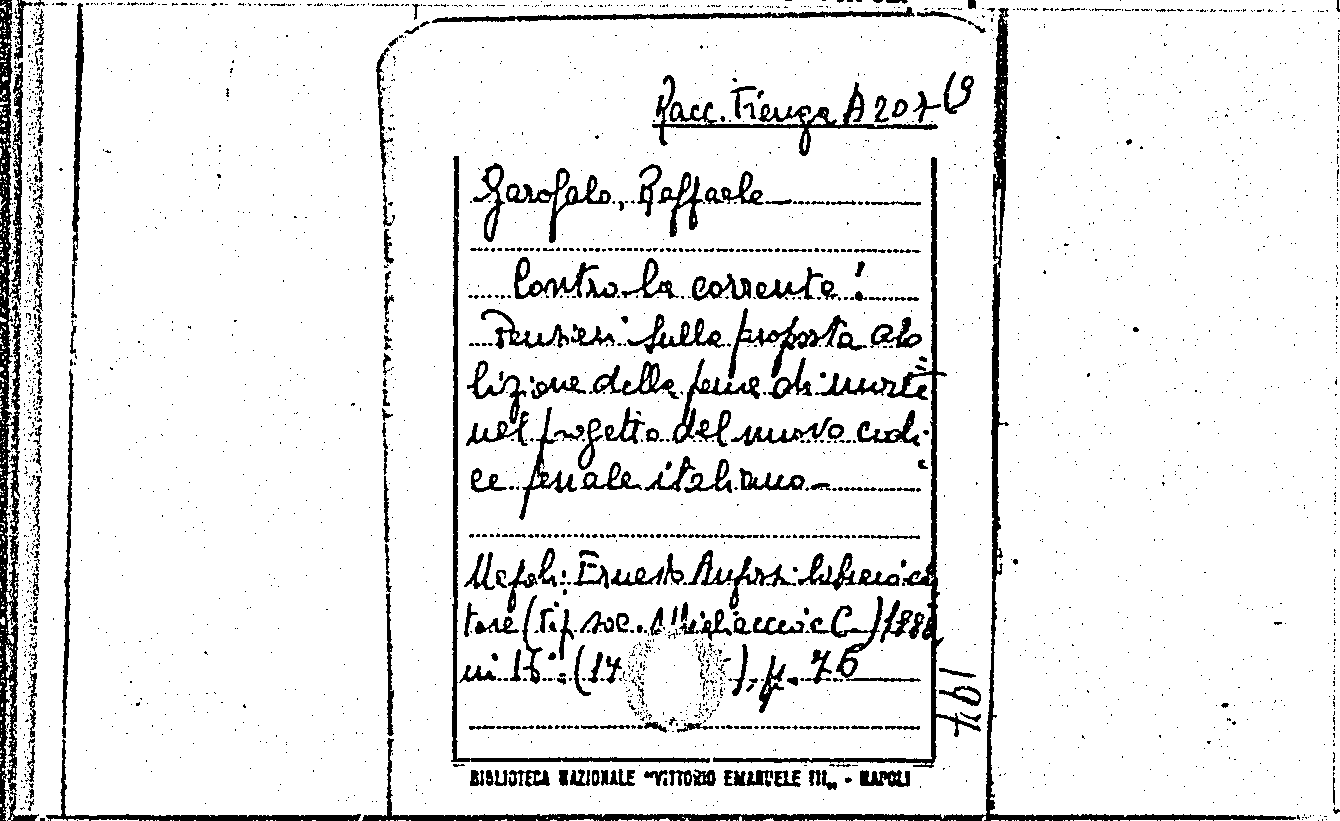 Racc. Fienga A 207 (9
Garofalo, Raffaele
Contro la corrente!
Pensieri sulla proposta abo
lizione della pena di morte
nel progetto del nuovo codi
ce penale italiano
Napoli: Ernesto Anfossi libraio edi
tore (tip. soc. Migliaccio e C.) 1888
in 16°: (14 ), p. 76
BIBLIOTECA NAZIONALE "VITTORIO EMANUELE III„ - NAPOLI